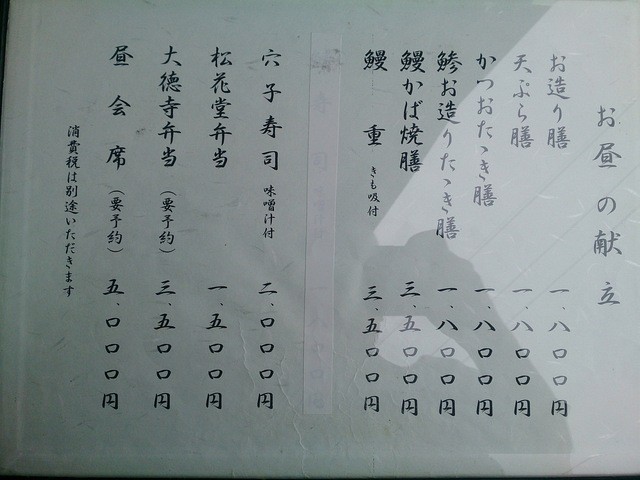 お昼の献立
お造り膳 一、八〇〇円
天ぷら膳 一、八〇〇円
かつおたゝき膳 一、八〇〇円
鯵お造りたゝき膳 一、八〇〇円
鰻かば焼膳 三、五〇〇円
鰻重 きも吸付 三、五〇〇円
穴子寿司 味噌汁付 二、〇〇〇円
松花堂弁当 一、五〇〇円
大徳寺弁当（要予約） 三、五〇〇円
昼会席（要予約） 五、〇〇〇円
消費税は別途いただきます